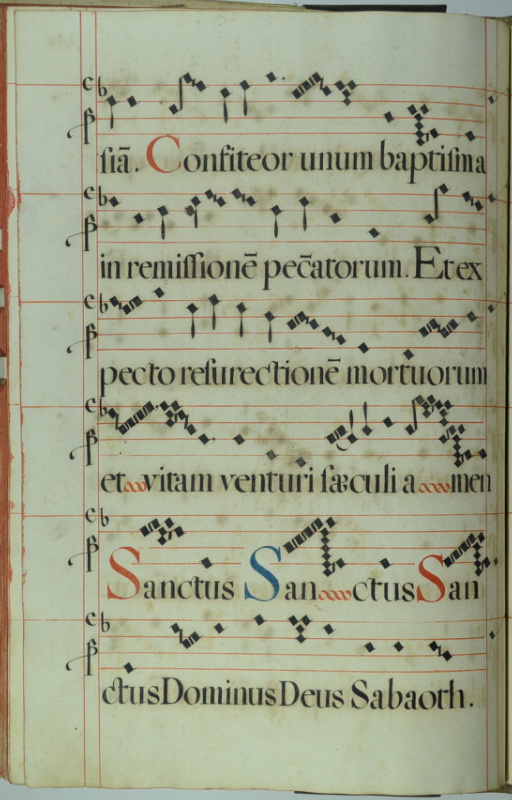 ſiā. Confiteor unum baptiſma
in remiſſionē pec̄atorum. Et ex
pecto reſurectionē mortuorum
et vitam venturi ſæculi a men
Sanctus San ctus San
ctus Dominus Deus Sabaoth.